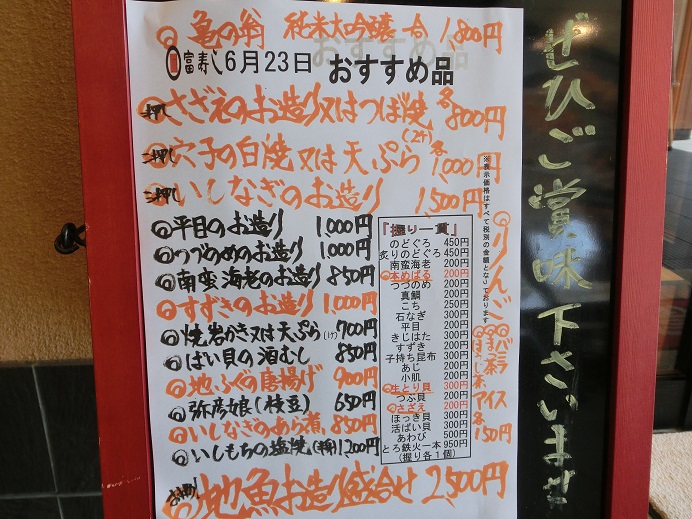 亀の翁 純米大吟醸 一合 1,800円
富寿し 6月23日 おすすめ品
一押し さざえのお造り又はつぼ焼(2ケ) 各800円
二押し 穴子の白焼又は天ぷら 各1,000円
三押し いしなぎのお造り 1,500円
平目のお造り 1,000円
つづのめのお造り 1,000円
南蛮海老のお造り 850円
すずきのお造り 1,000円
焼岩がき又は天ぷら(1ケ) 700円
ばい貝の酒むし 850円
地ふぐの唐揚げ 900円
弥彦娘(枝豆) 650円
いしなぎのあら煮 850円
いしもちの塩焼 1,200円
地魚お造り盛合せ 2,500円
『握り一貫』
のどぐろ 450円
炙りのどぐろ 450円
南蛮海老 200円
本めばる 200円
つづのめ 200円
真鯛 200円
こち 250円
石なぎ 300円
平目 200円
きじはた 300円
すずき 200円
子持ち昆布 300円
あじ 200円
小肌 200円
生とり貝 300円
つぶ貝 200円
さざえ 200円
ほっき貝 300円
活ばい貝 300円
あわび 500円
とろ鉄火一本 950円
(握り各1個)
※表示価格はすべて税別の金額となっております
りんご
バニラ
抹茶
ほうじ茶
アイス
各150円
ぜひご賞味下さいませ